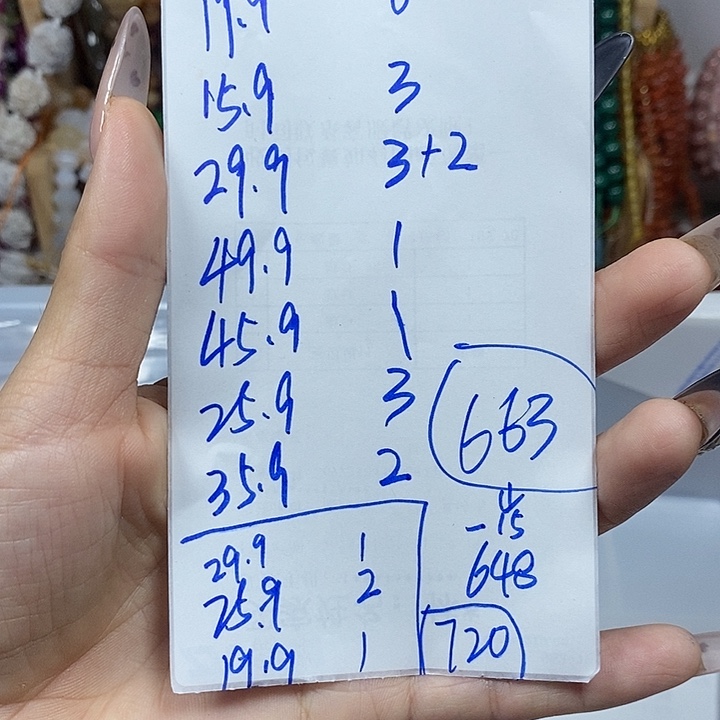 15.9 3
29.9 3+2
49.9 1
45.9 1
25.9 3
35.9 2
663
-15
648
720
29.9 1
25.9 2
19.9 1